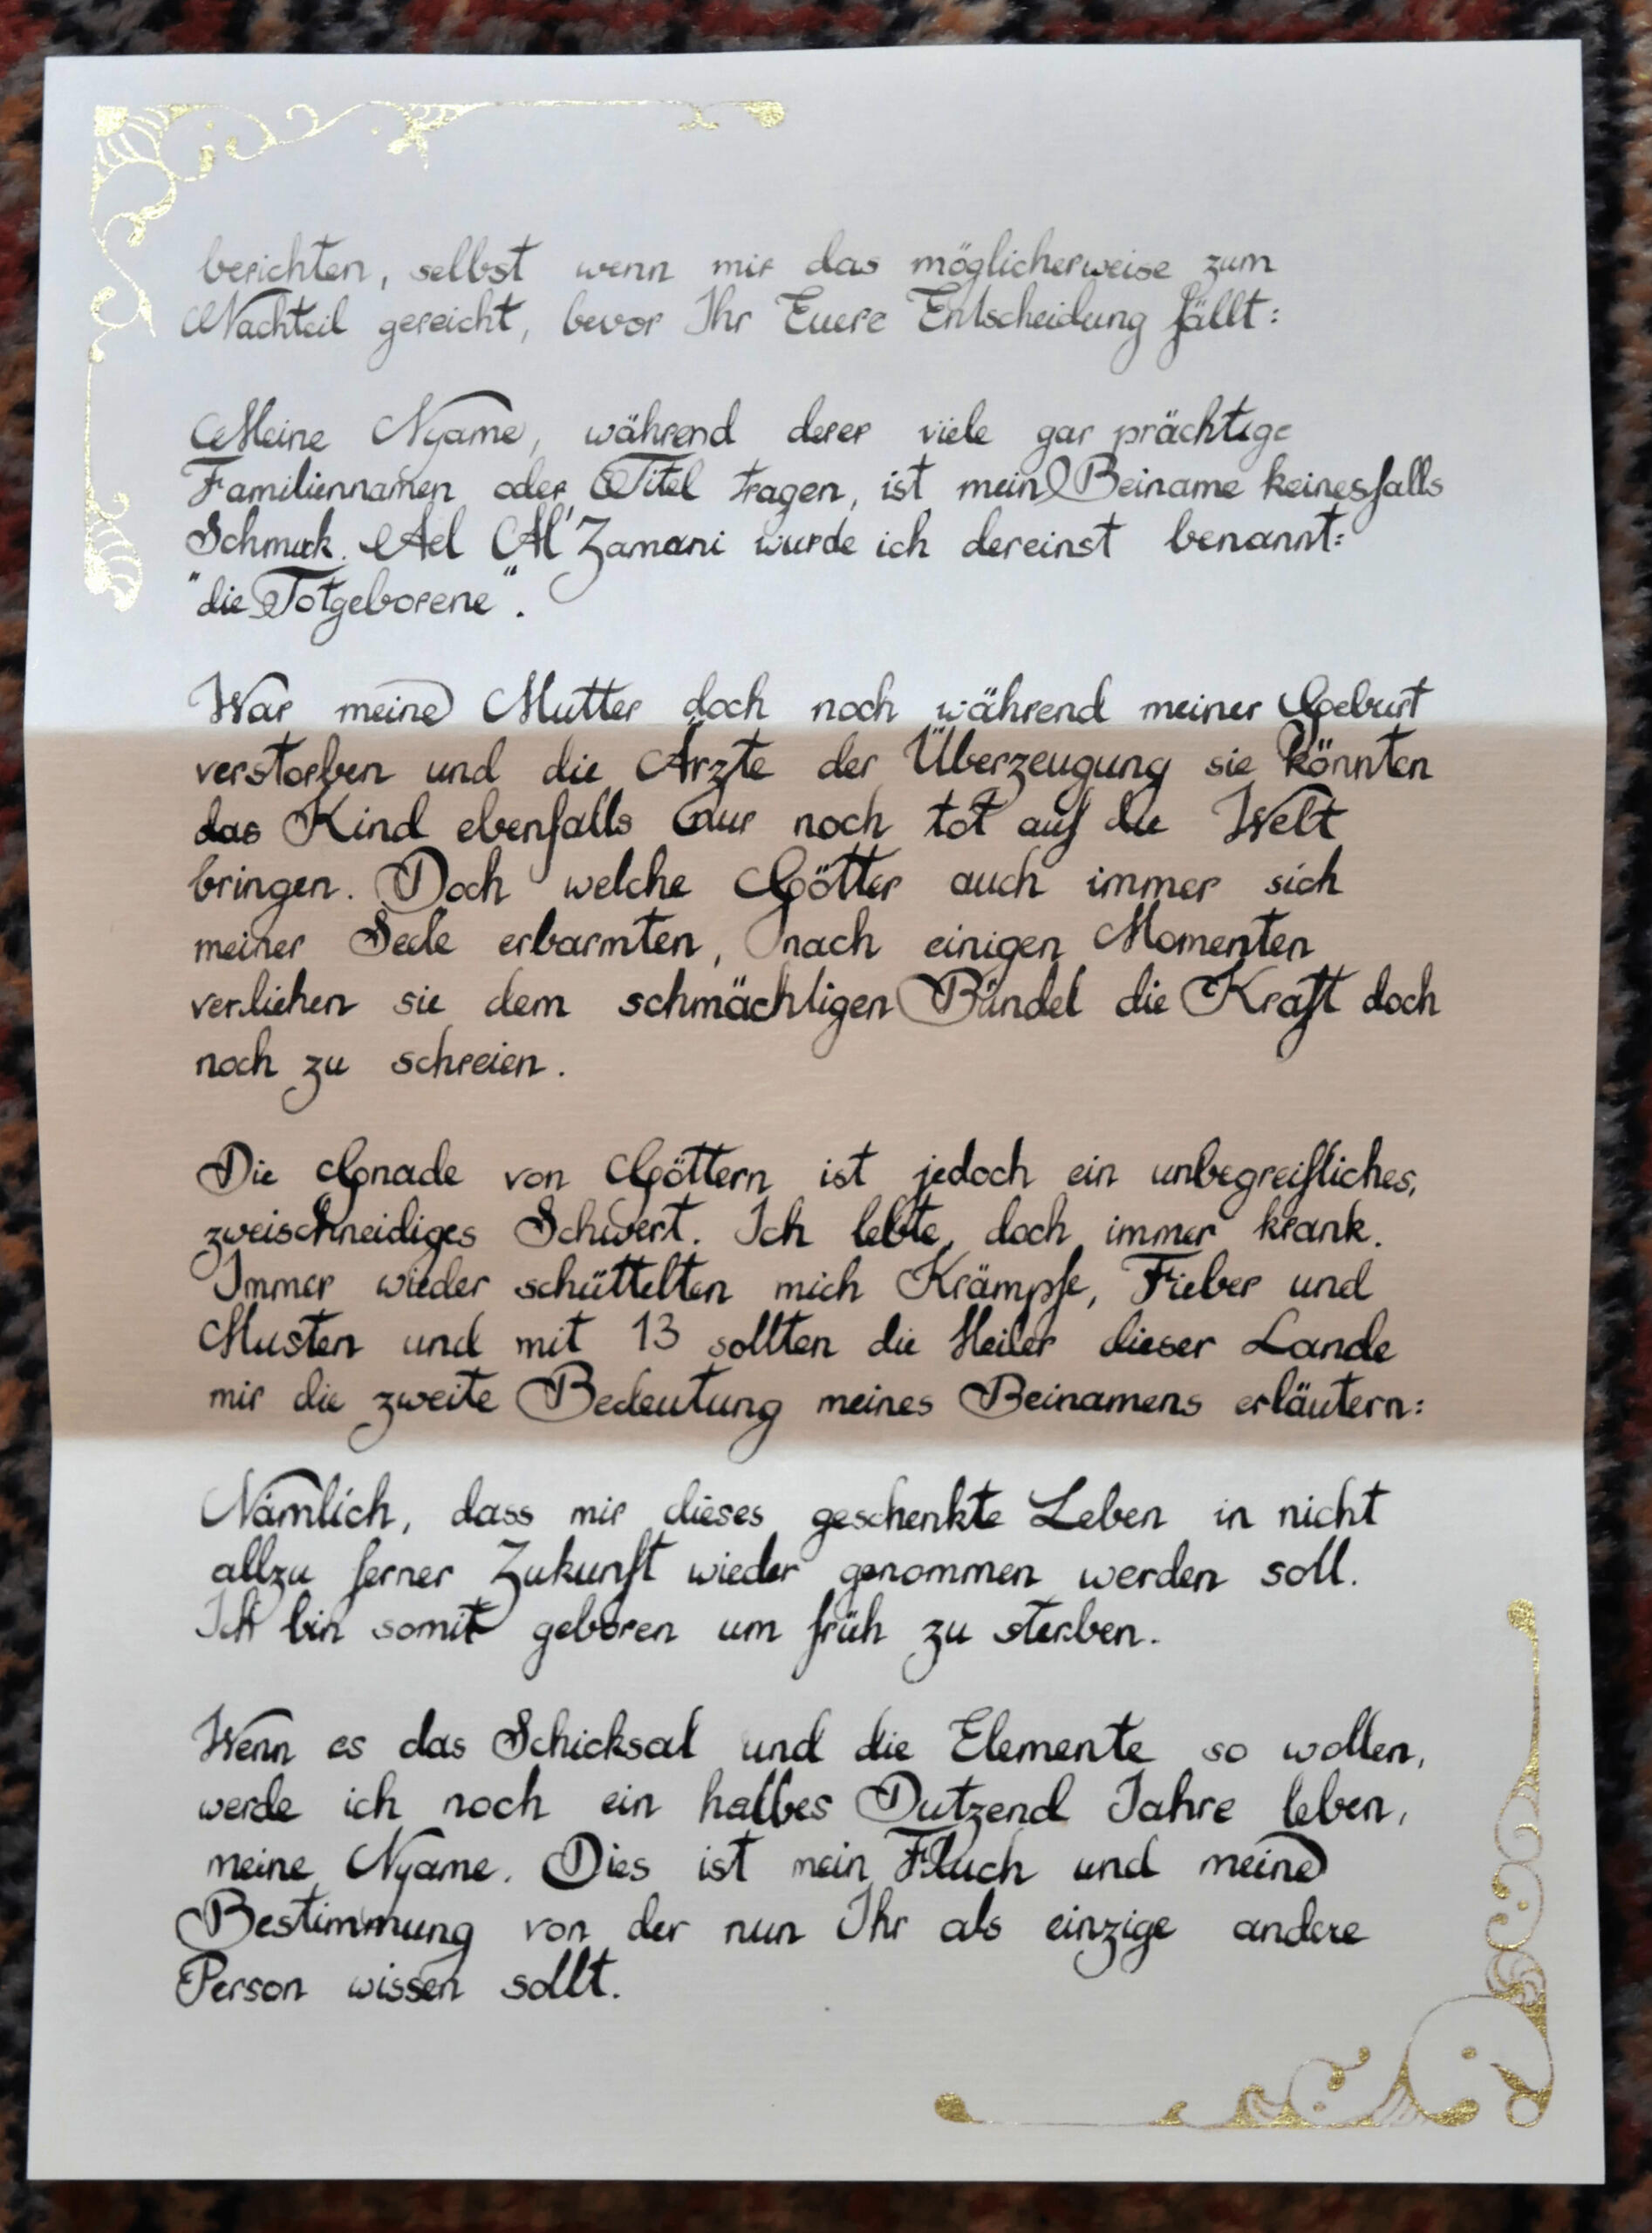 berichten, selbst wenn mir das möglicherweise zum
Nachteil gereicht, bevor Ihr Euere Entscheidung fällt:
Meine Nyame, während derer viele gar prächtige
Familiennamen oder Titel tragen, ist mein Beiname keinesfalls
Schmuck. Ael Al'Zamani wurde ich dereinst benannt:
"die Totgeborene".
War meine Mutter doch noch während meiner Geburt
verstorben und die Ärzte der Überzeugung sie könnten
das Kind ebenfalls nur noch tot auf die Welt
bringen. Doch welche Götter auch immer sich
meiner Seele erbarmten, nach einigen Momenten
verliehen sie dem schmächtigen Bündel die Kraft doch
noch zu schreien.
Die Gnade von Göttern ist jedoch ein unbegreifliches,
zweischneidiges Schwert. Ich lebte, doch immer krank.
Immer wieder schüttelten mich Krämpfe, Fieber und
Husten und mit 13 sollten die Heiler dieser Lande
mir die zweite Bedeutung meines Beinamens erläutern:
Nämlich, dass mir dieses geschenkte Leben in nicht
allzu ferner Zukunft wieder genommen werden soll.
Ich bin somit geboren um früh zu sterben.
Wenn es das Schicksal und die Elemente so wollen,
werde ich noch ein halbes Dutzend Jahre leben,
meine Nyame. Dies ist mein Fluch und meine
Bestimmung von der nun Ihr als einzige andere
Person wissen sollt.